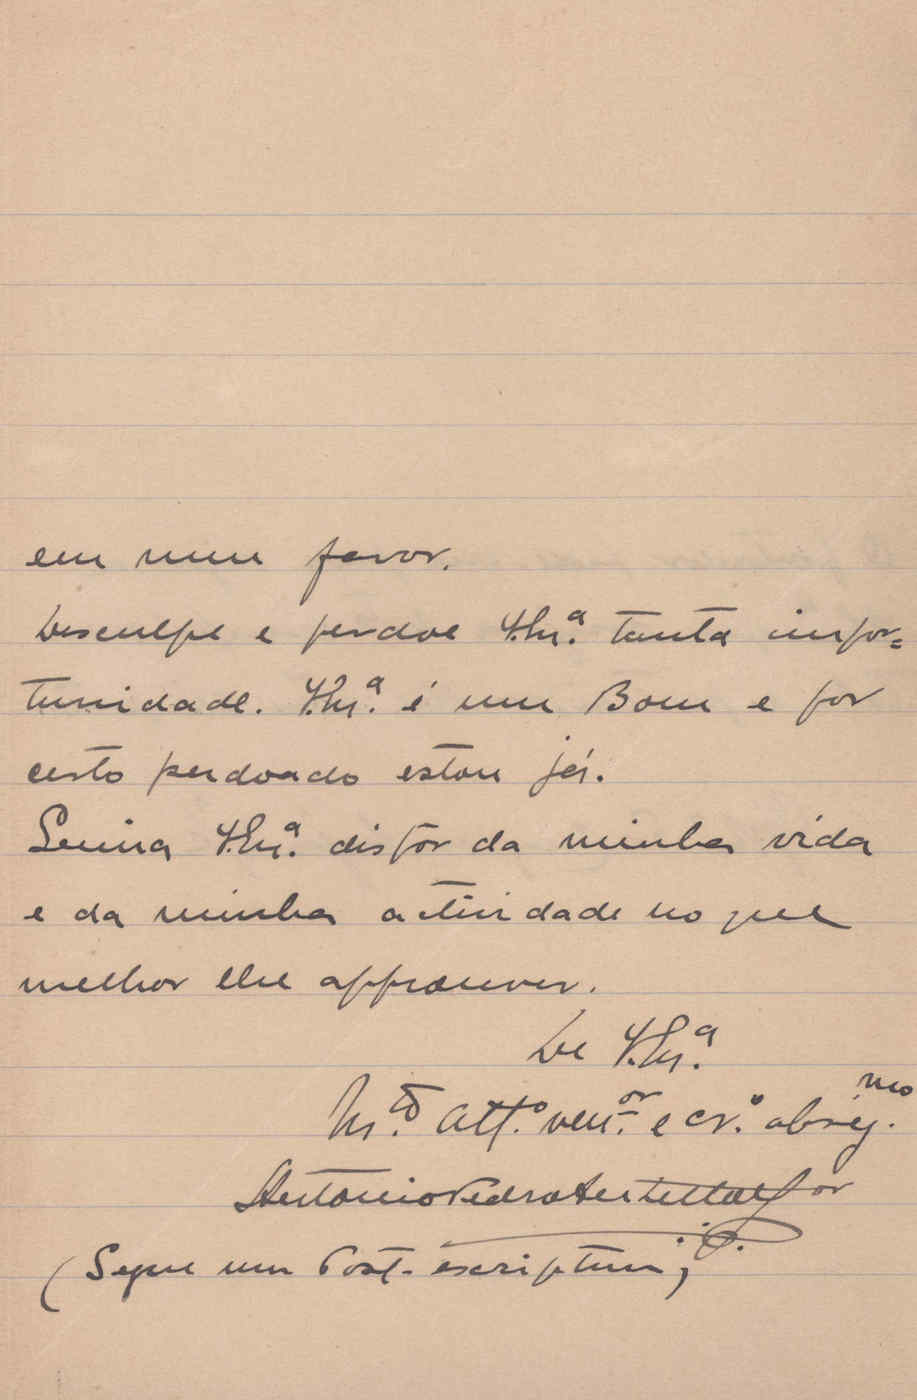 em num favor.
Desculpe e perdoe V.Ex.ª tanta impor=
tunidade. V.Ex.ª é um Bom e por
certo perdoado estou já.
V.Ex.ª dispor da minha vida
e da minha actividade no que
melhor lhe approuver.
De V.Ex.ª
M.to Att.º ven.or e cr.º obrig.mo
Antonio Pedro
(Segue um Post-escriptum)